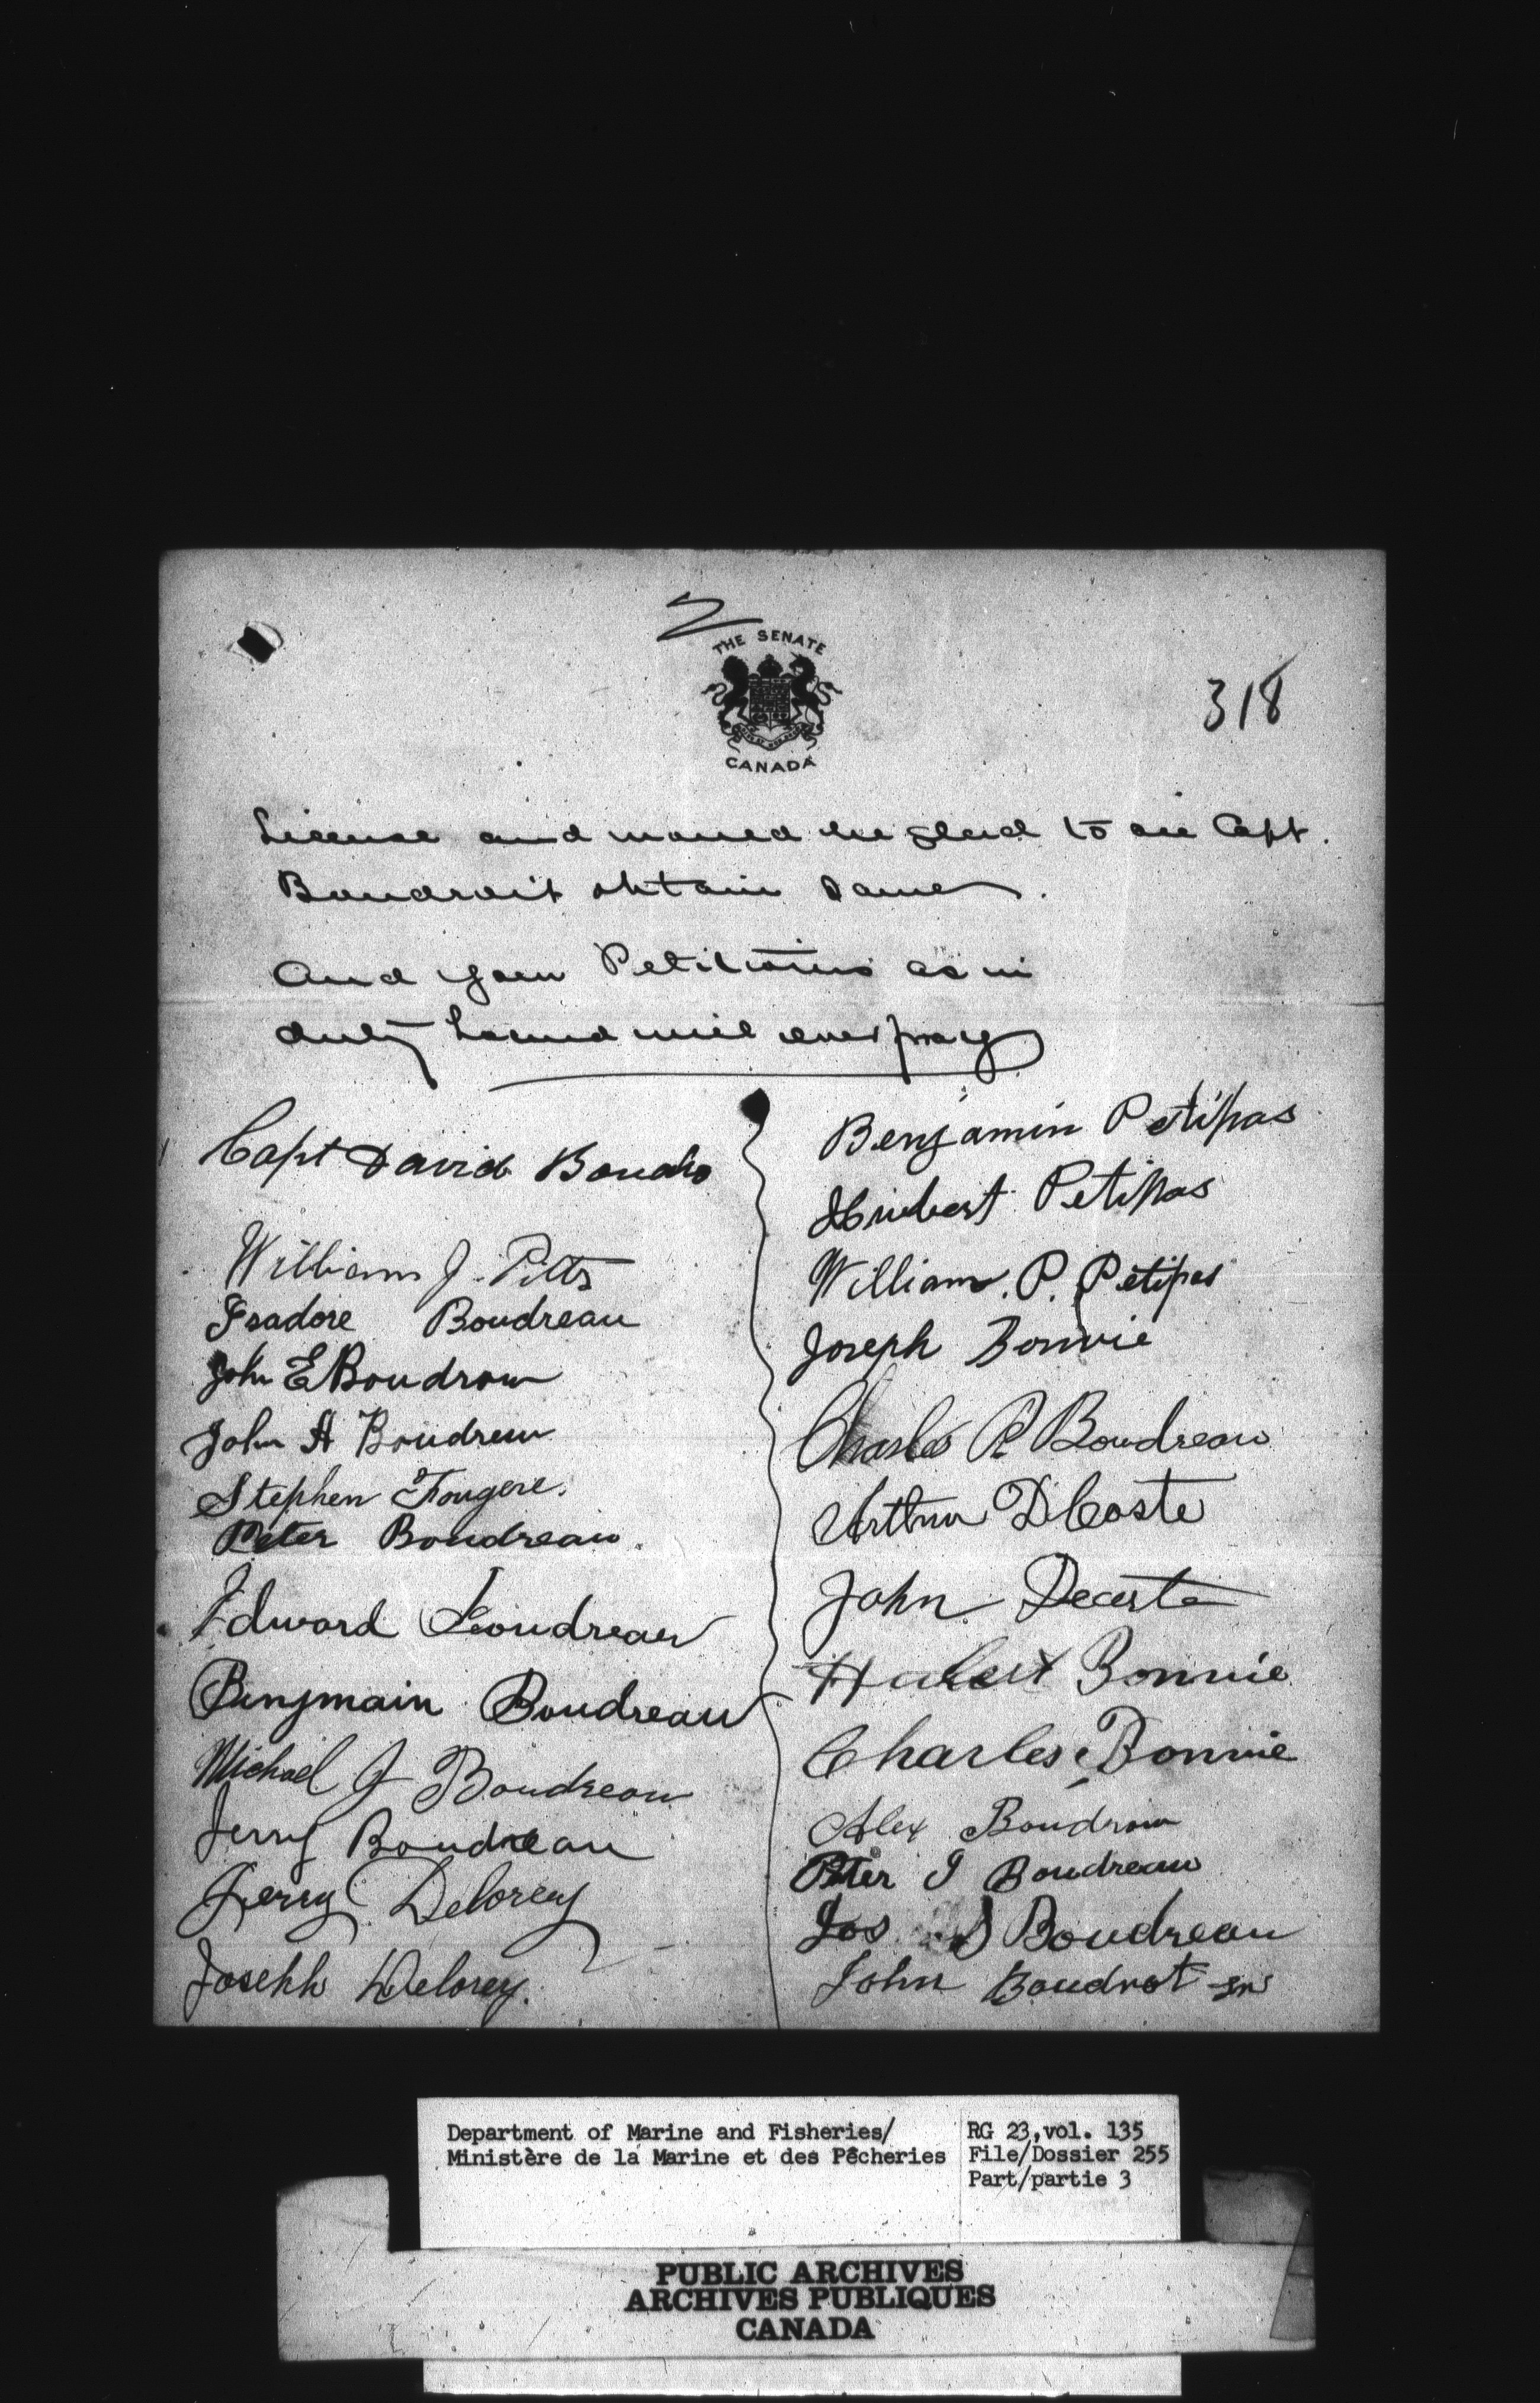 2
THE SENATE
CANADA
318
License and would be glad to see Capt.
Boudroit obtain same.
And your Petitioners as in
duty bound will ever pray
Capt David Boudro
William J. Pitts
Isadore Boudreau
John E Boudrow
John A Boudreau
Stephen Fougere.
Peter Boudreau.
Edward Boudreau
Benjmain Boudreau
Michael J Boudreau
Jerry Boudreau
Jerry Delorey
Josehh Delorey.
Benjamin Petipas
Hubert Petipas
William. P. Petipas
Joseph Bonvie
Charles P Boudreau
Arthur DCoste
John Decoste
Hubert Bonnie
Charles Bonnie
Alex Boudrow
Peter J Boudreau
Jos S Boudreau
John Boudrot
Department of Marine and Fisheries/
Ministère de la Marine et des Pêcheries
RG 23, vol. 135
File/Dossier 255
Part/partie 3
PUBLIC ARCHIVES
ARCHIVES PUBLIQUES
CANADA